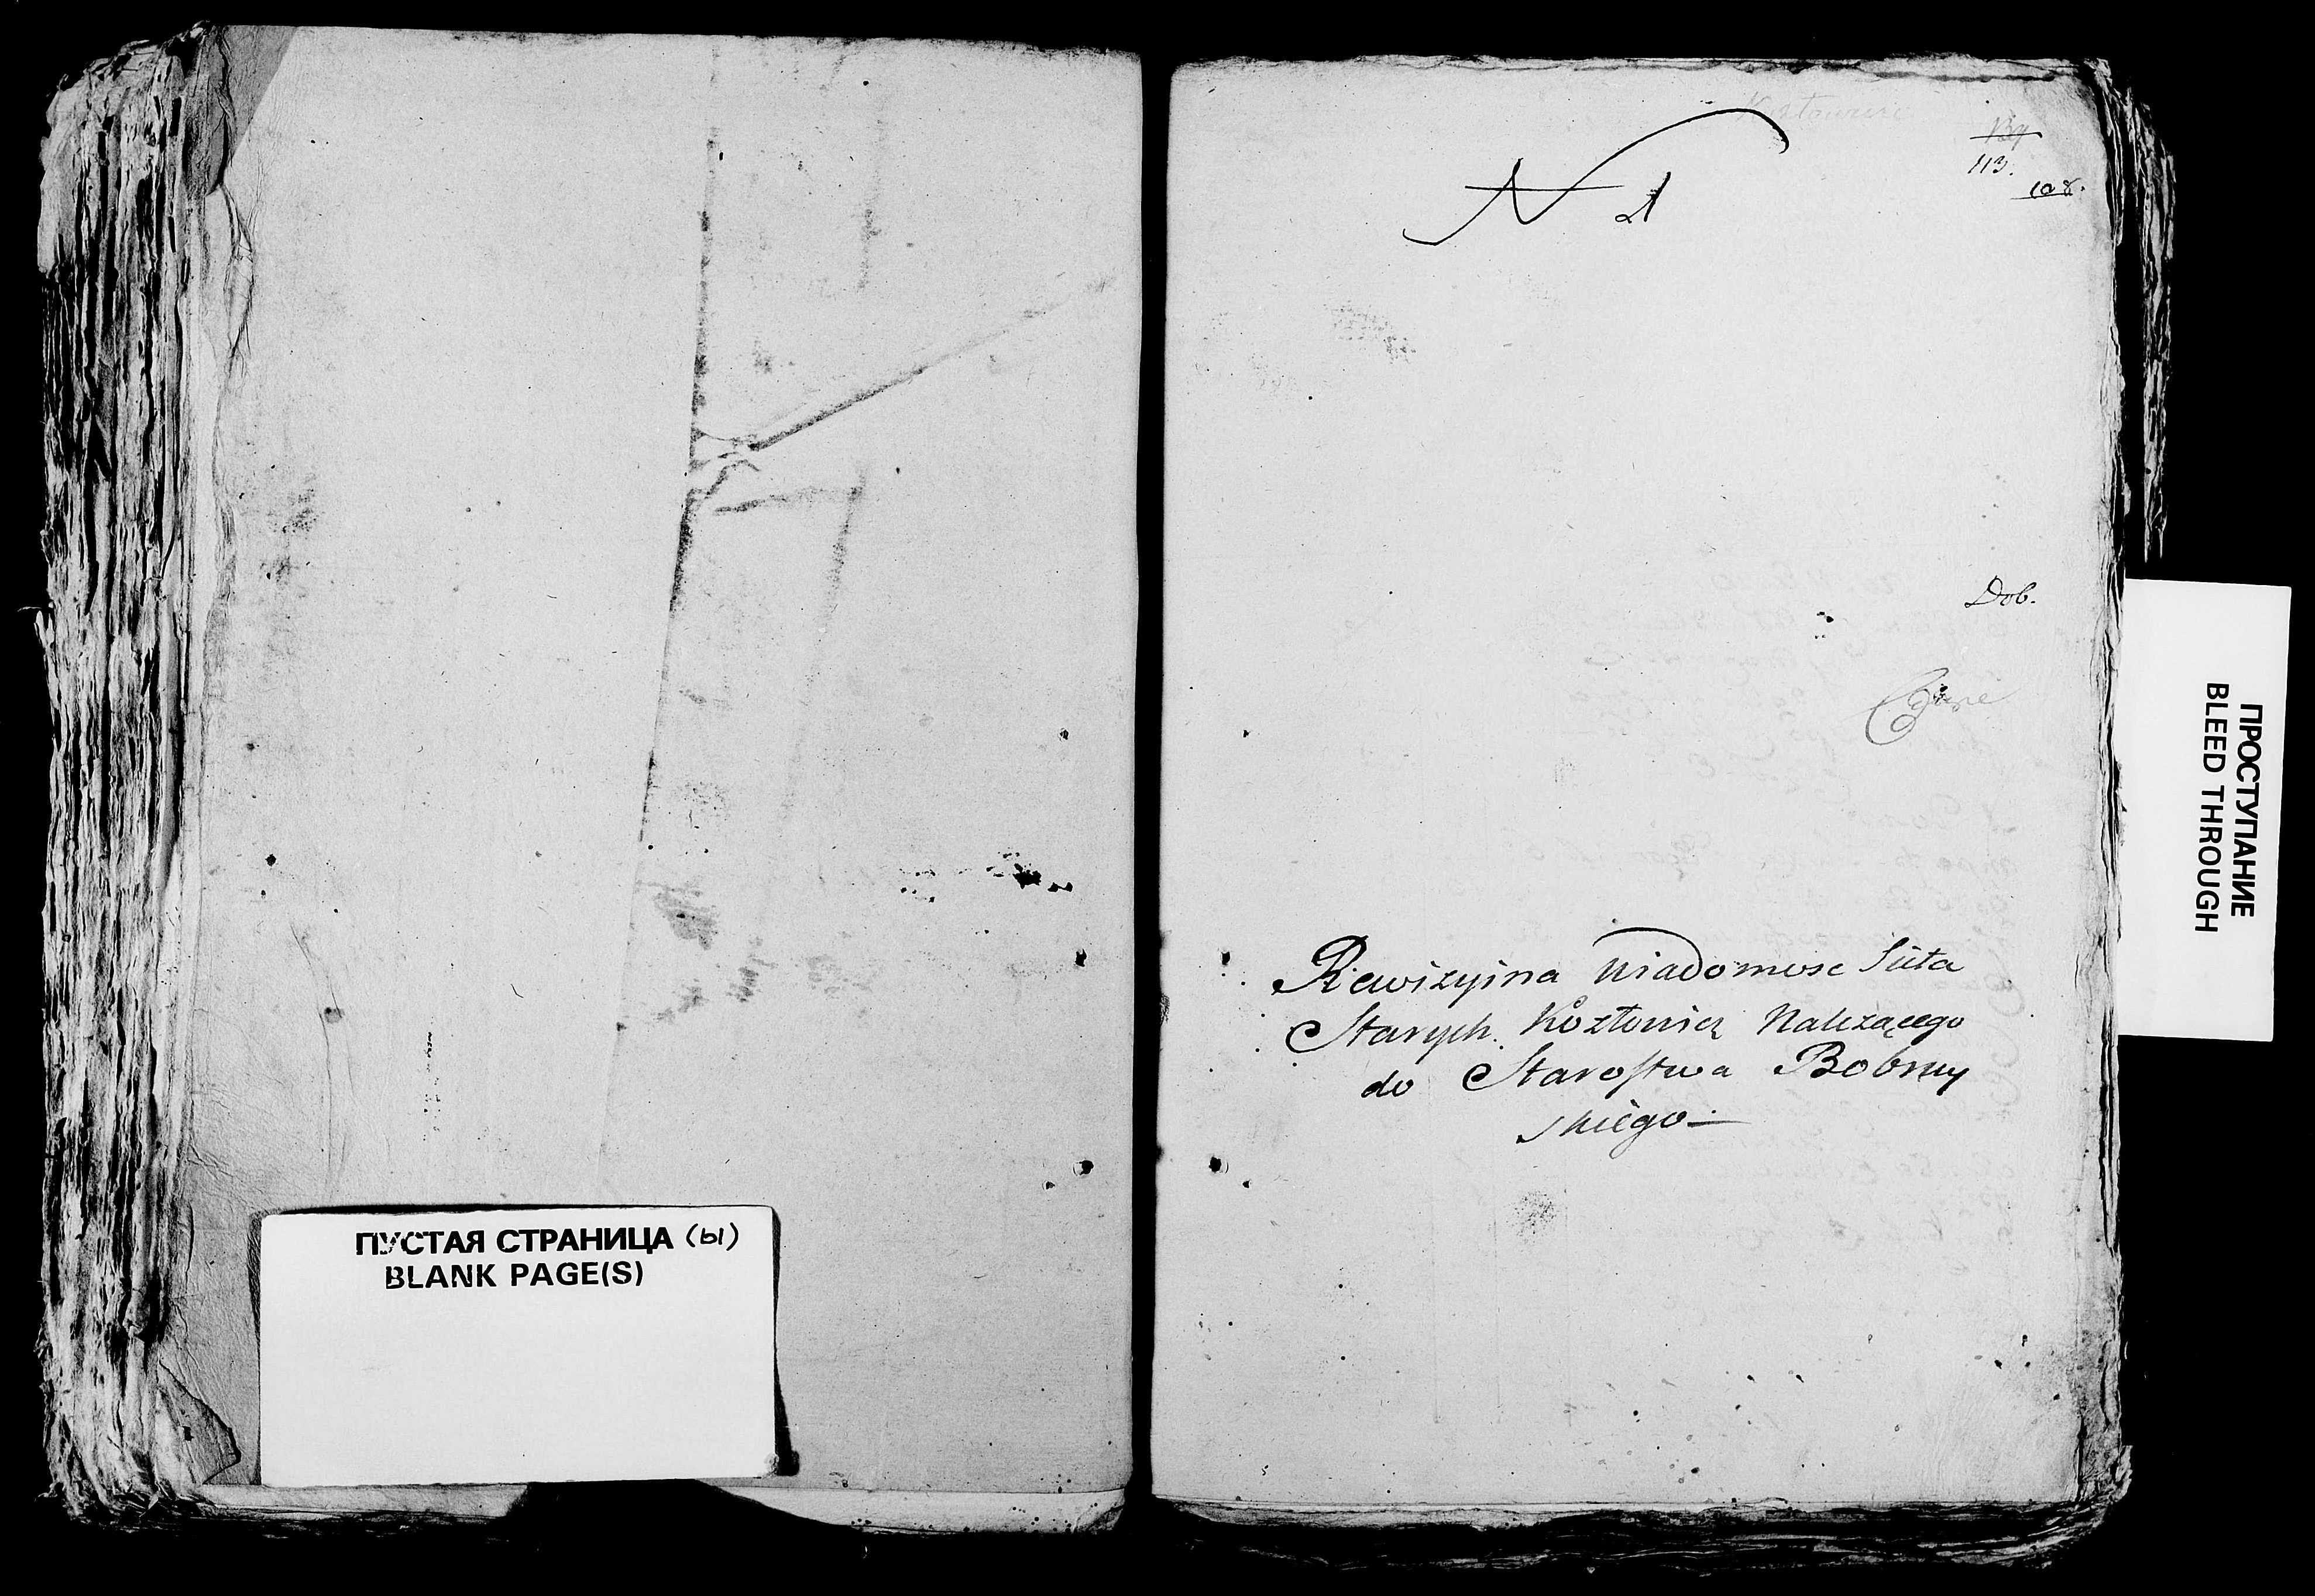 ПУСТАЯ СТРАНИЦА (ы)
BLANK PAGE(S)
N 1
113.
108.
Dob.
Rewizyina wiadomosc Siała
Starych Kozłowicz Należącego
do Starostwa Bobruy
skiego
ПРОСТУПАНИЕ
BLEED THROUGH